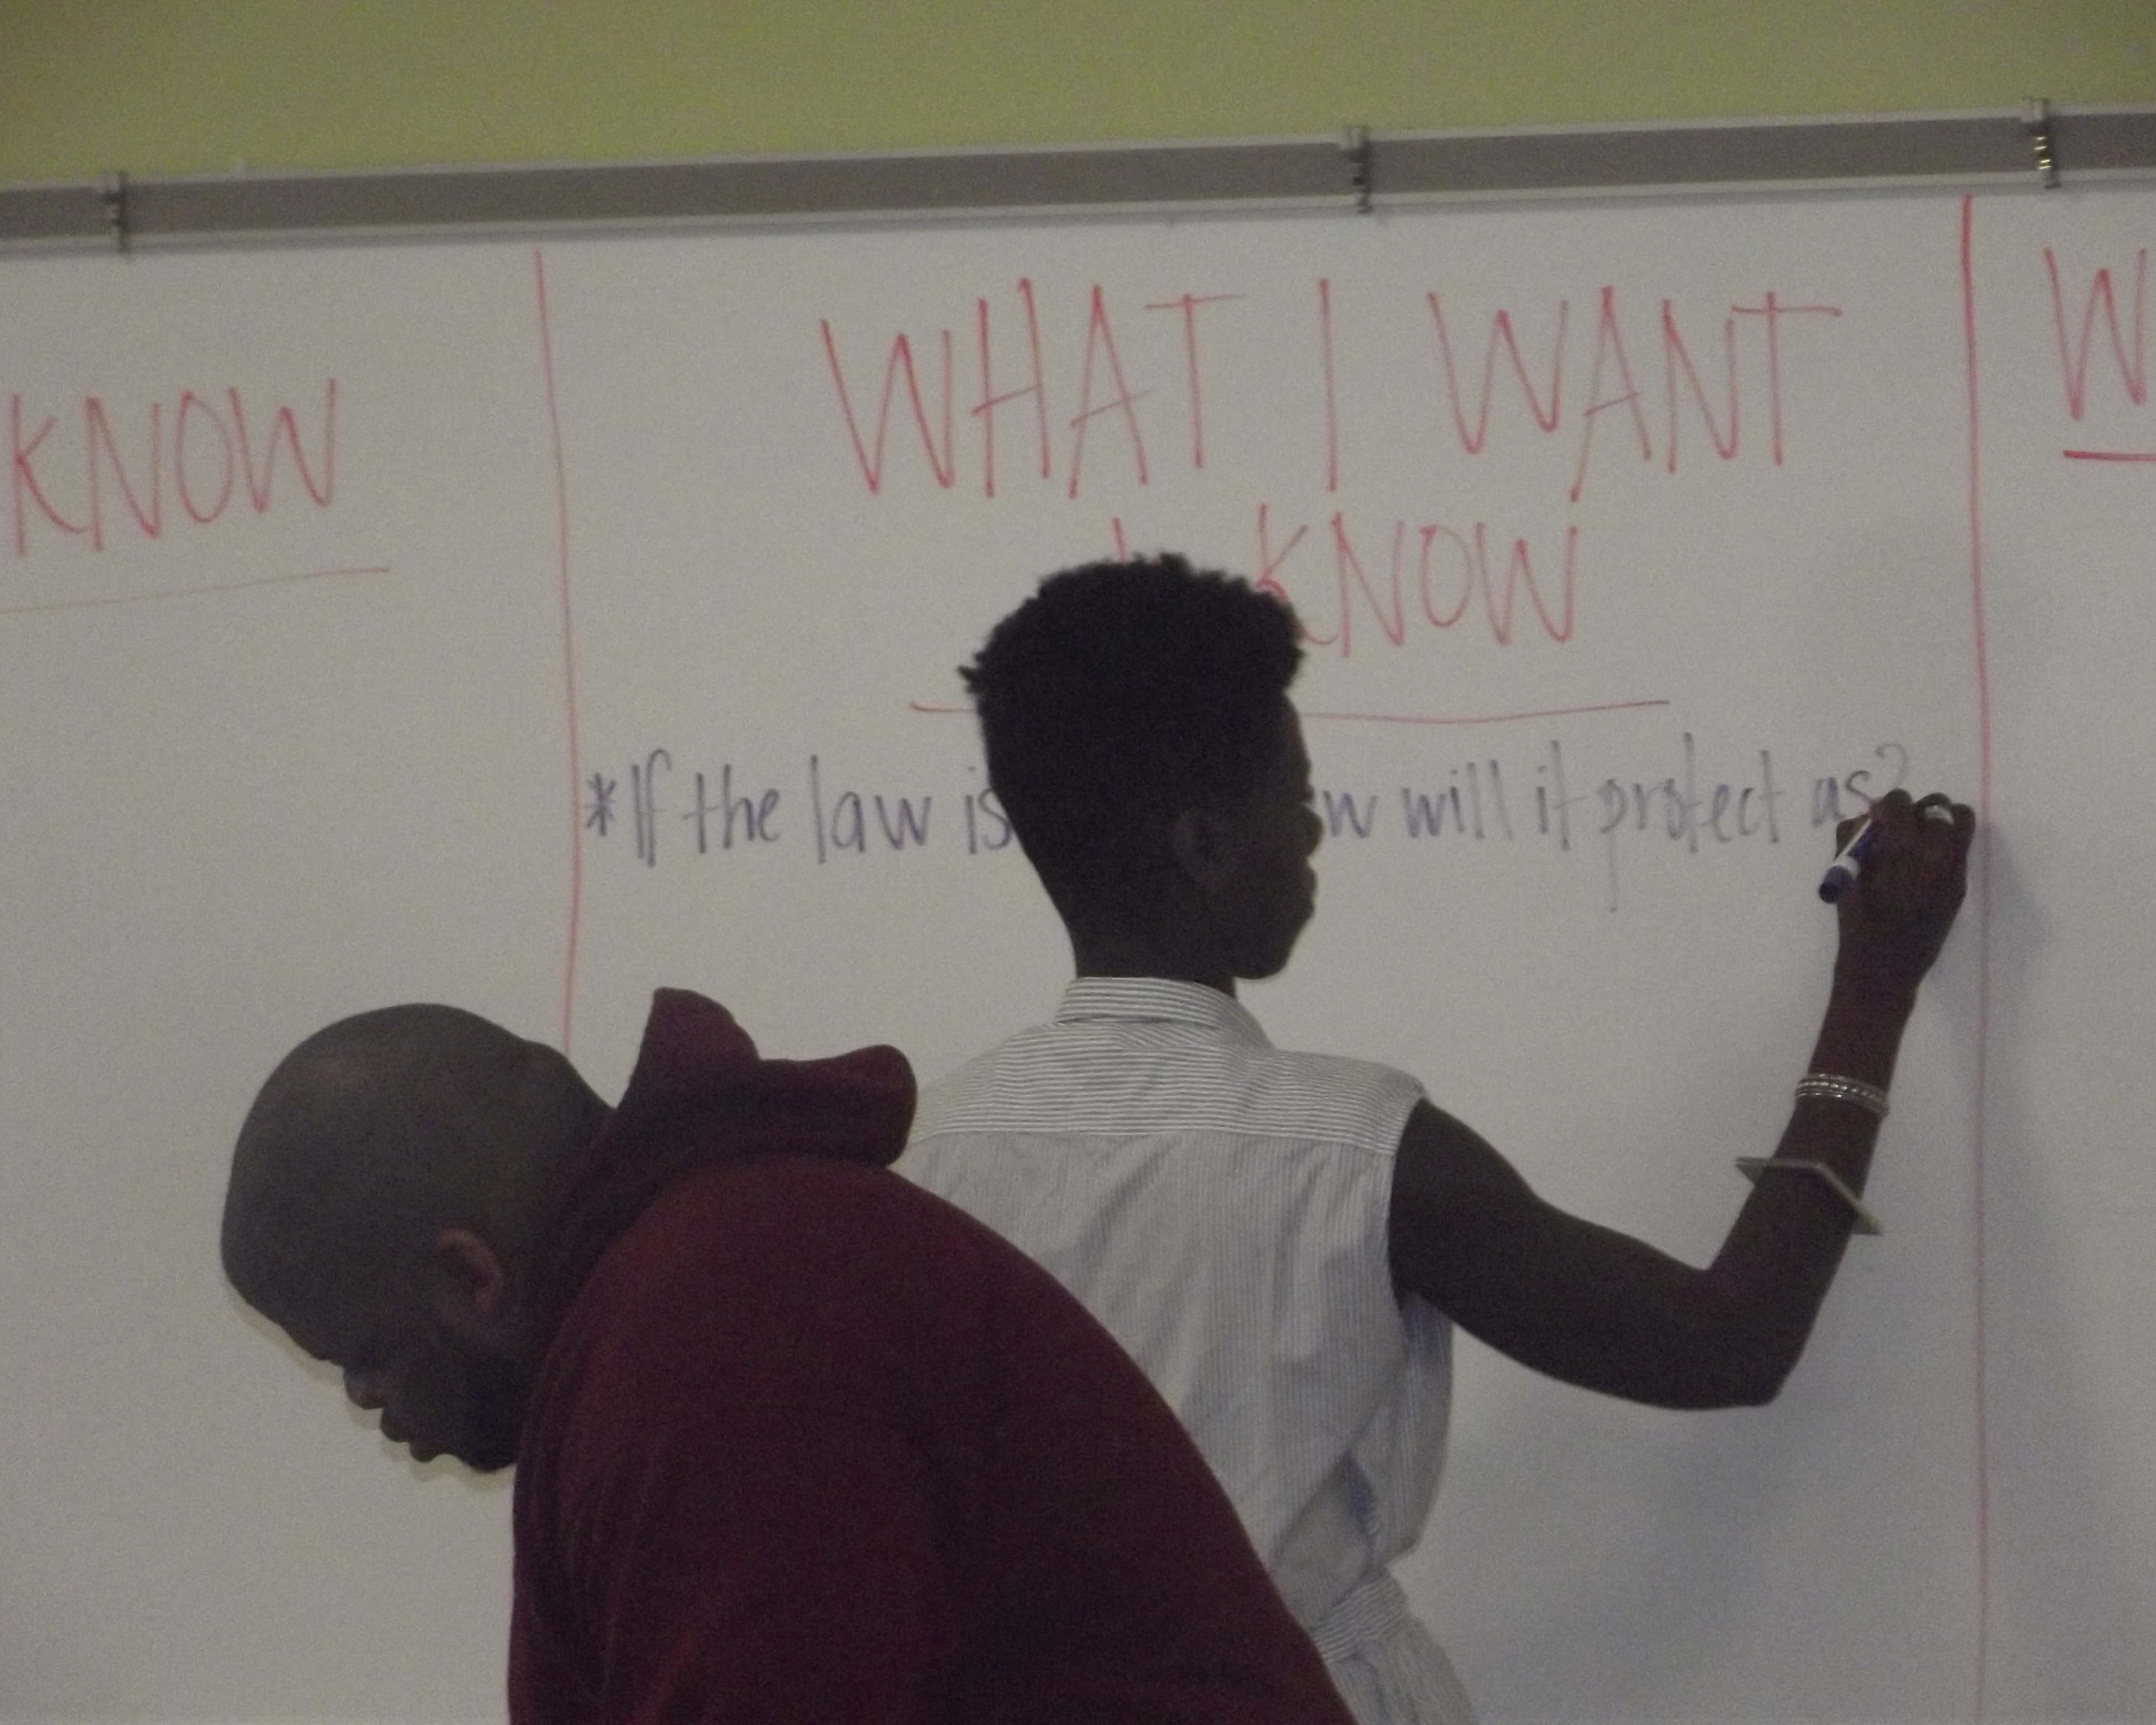 KNOW
WHAT I WANT
KNOW
W
*If the law is w will it protect us?